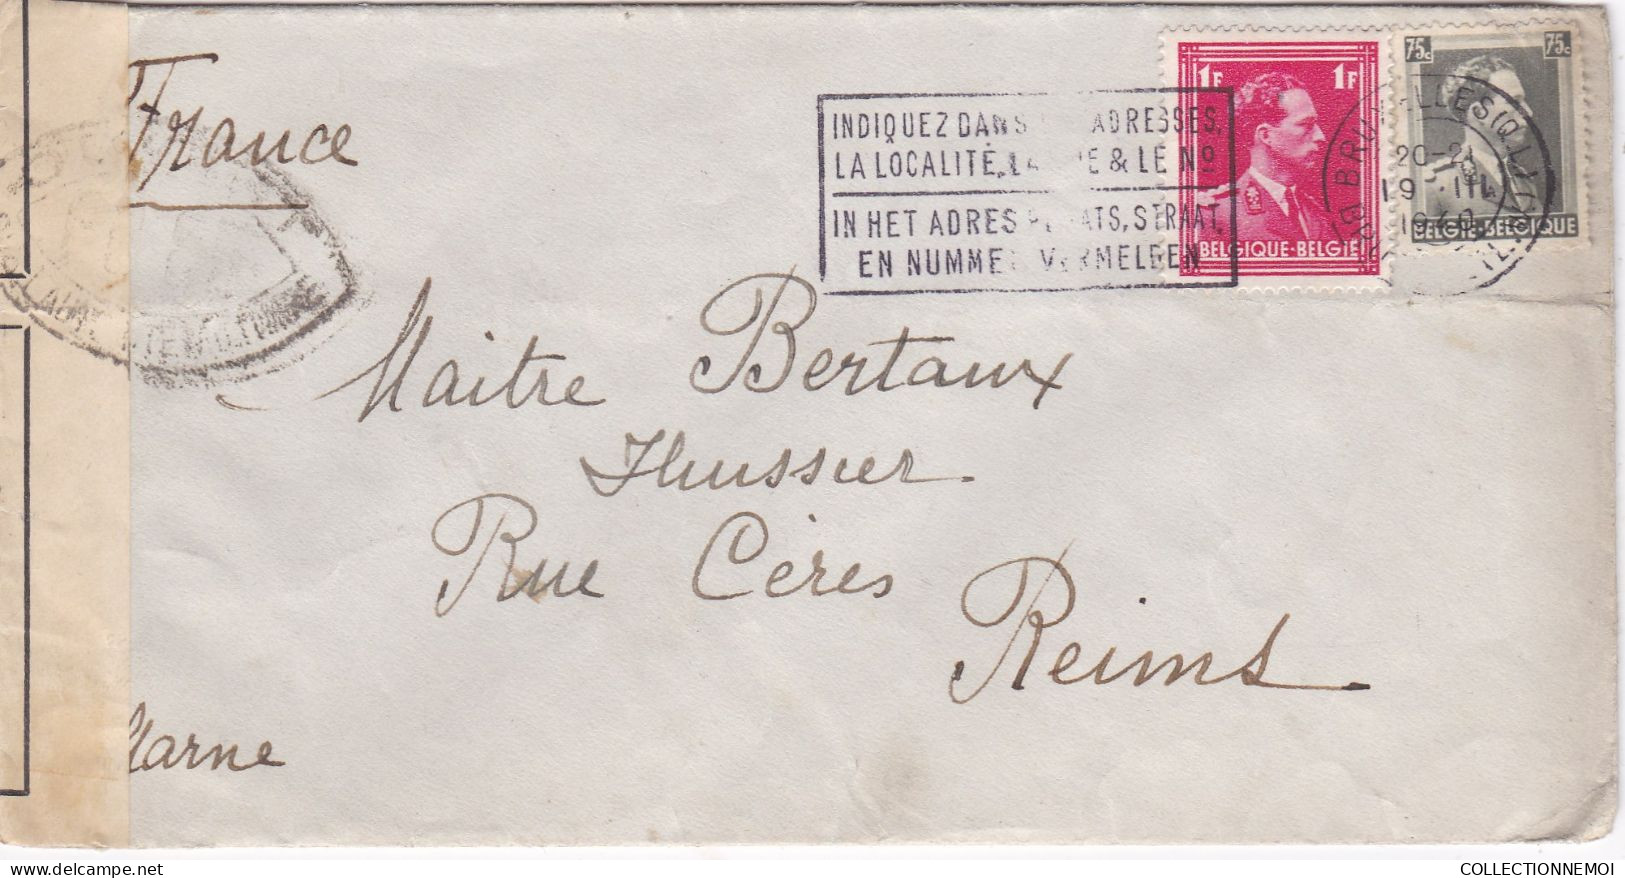 France
INDIQUEZ DANS ADRESSES,
LA LOCALITÉ, & LE Nº
IN HET ADRES STRAAT,
EN NUMMER VERMELDEN
1F 1F
BELGIQUE-BELGIE
75c 75c
BELGIE-BELGIQUE
20-21
19 III
1940
Maitre Bertaux
Huissier
Rue Cérès
Reims
Marne
COLLECTIONNEMOI